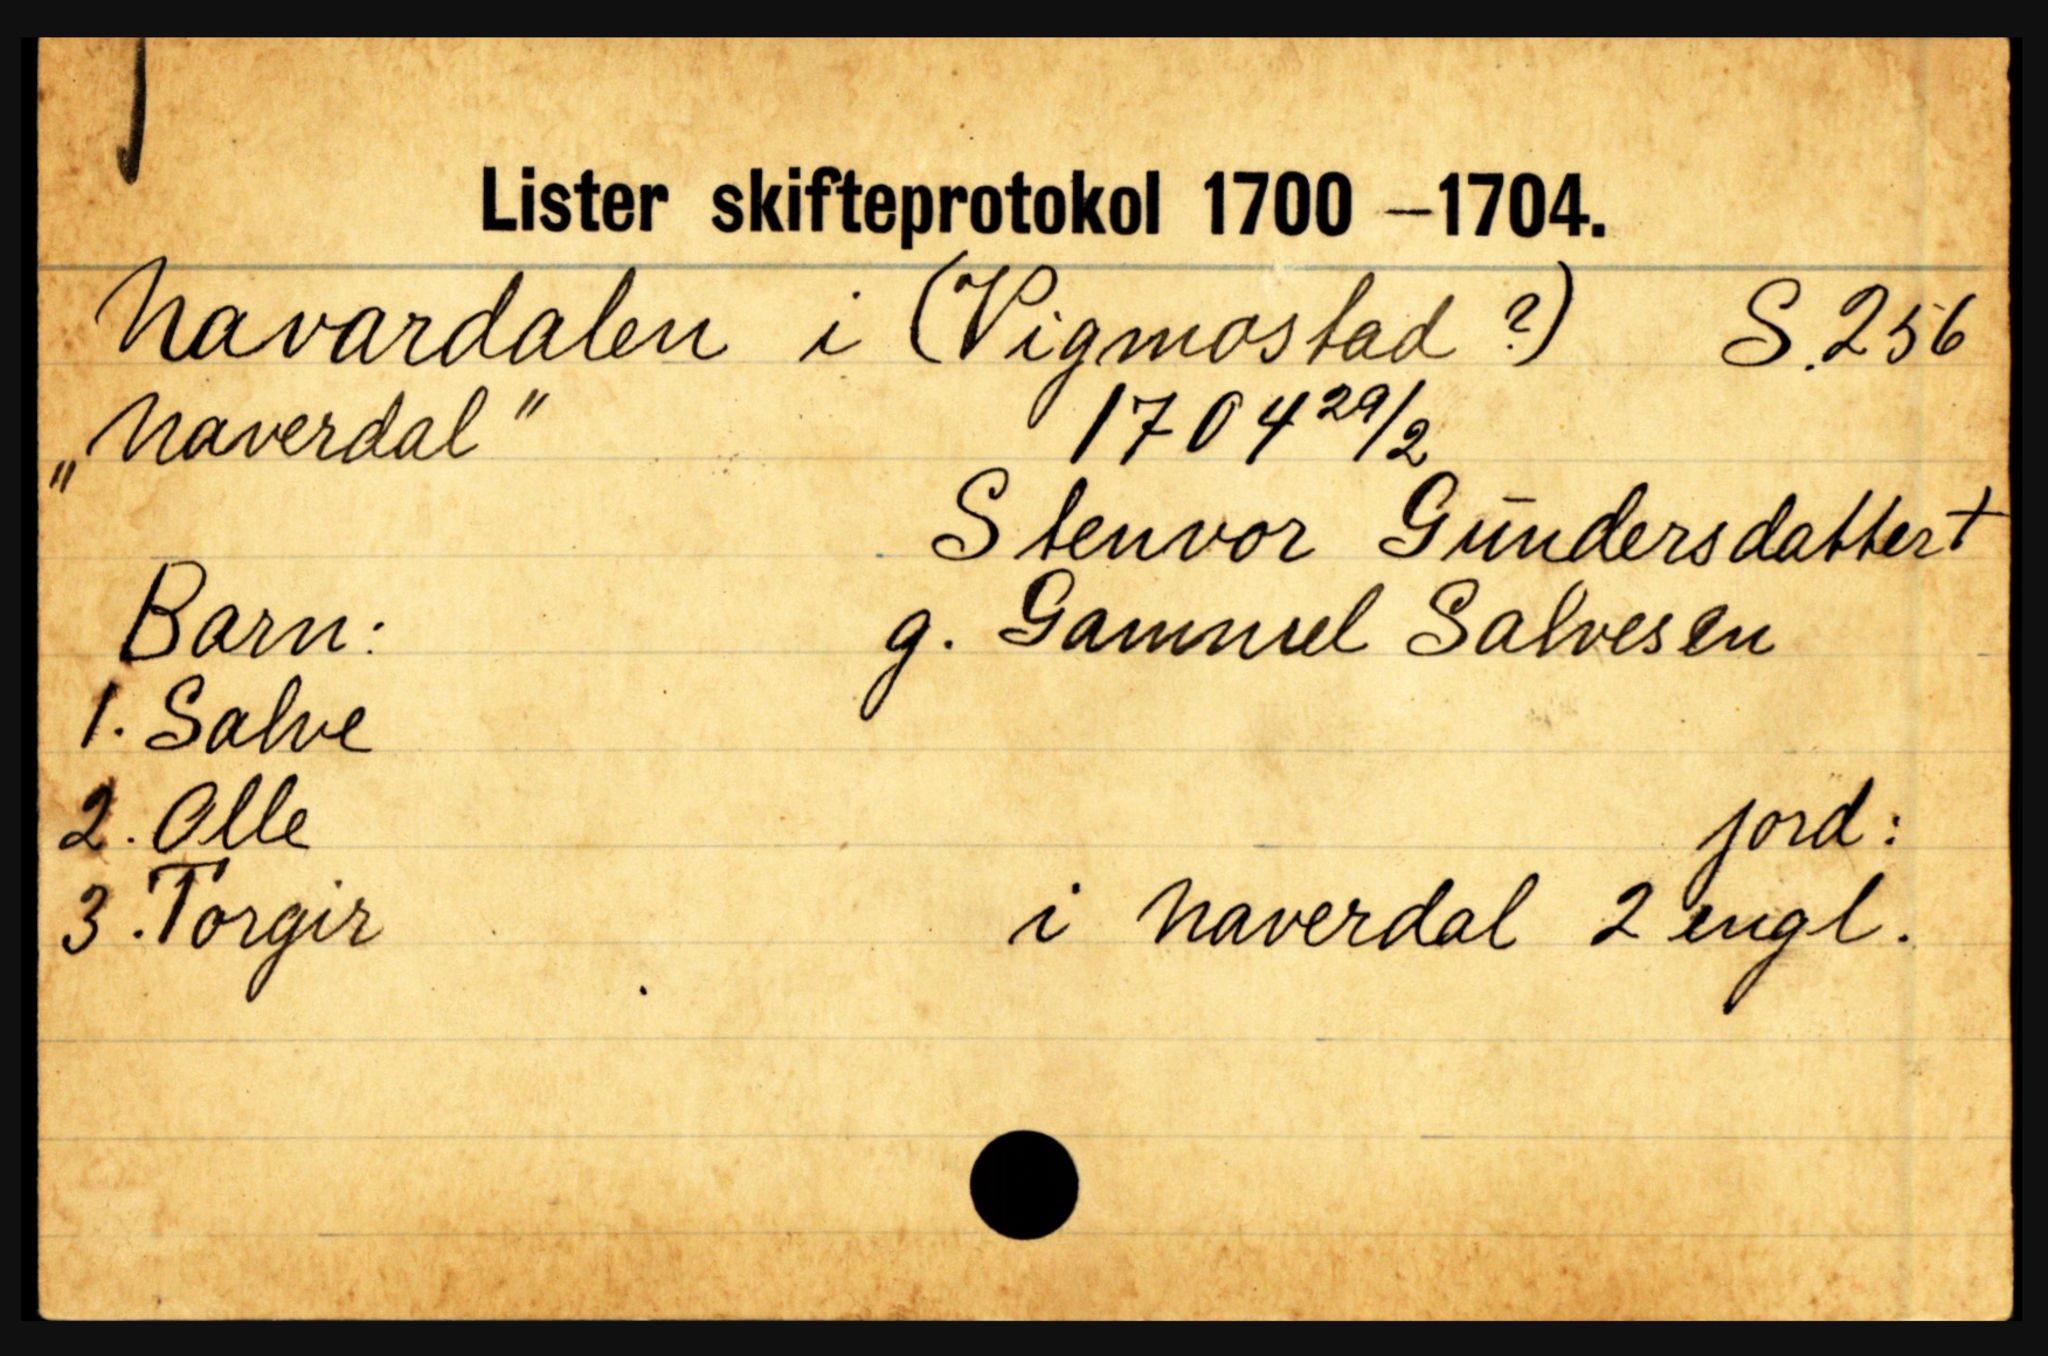 Lister skifteprotokol 1700 – 1704.
Navardalen i (Vigmostad ?) S. 256
„Naverdal" 1704 29/2
Stenvor Gundersdatter +
Barn: g. Gammel Salvesen
1. Salve
2. Olle jord:
3. Torgir i Naverdal 2 engl.